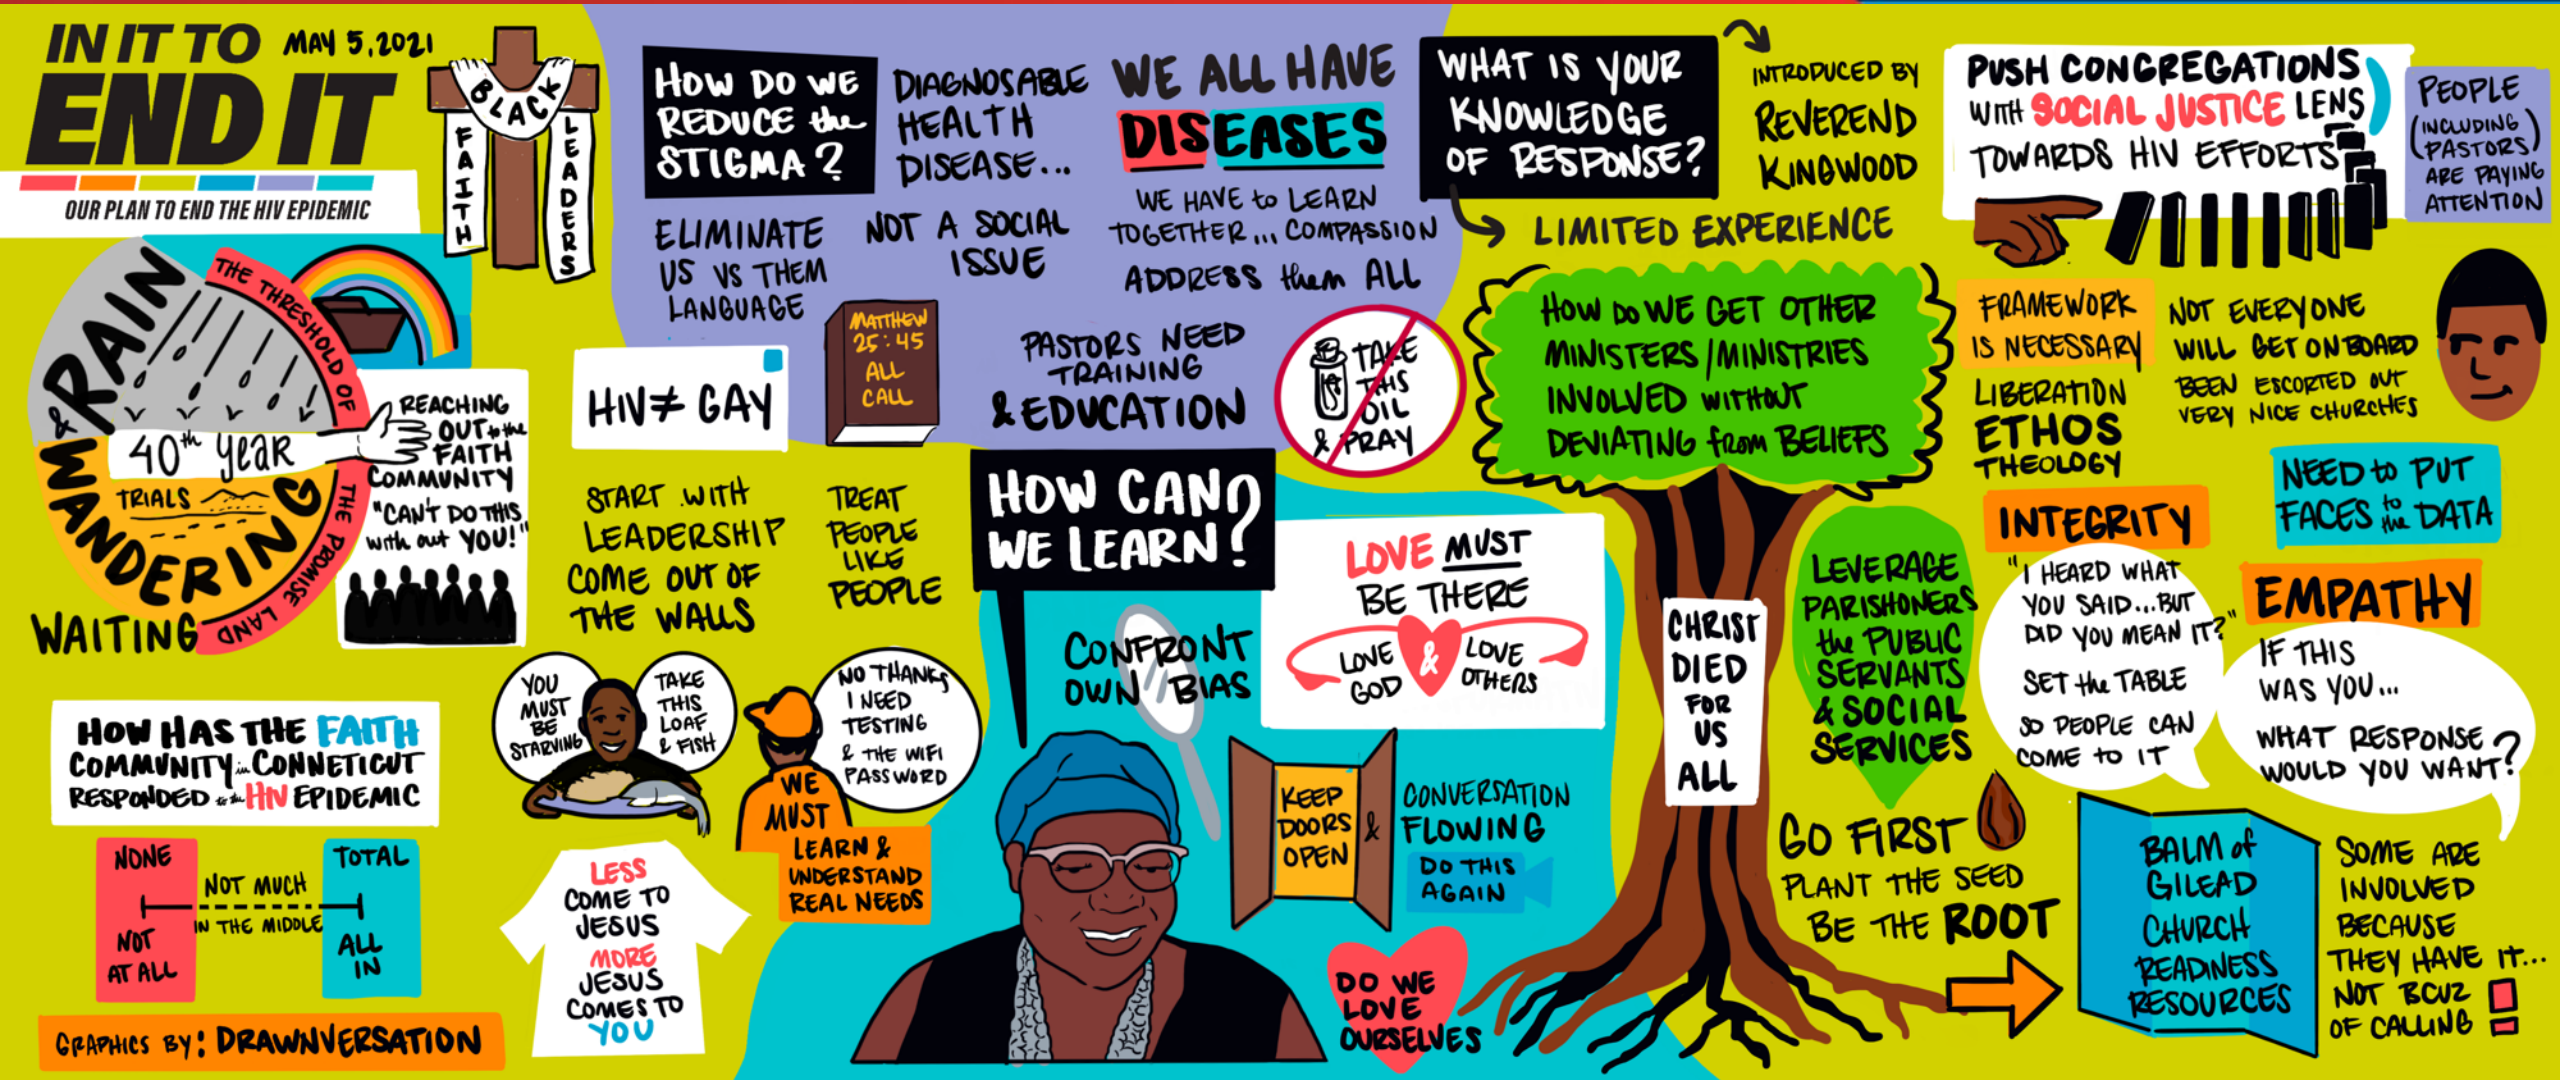 IN IT TO
END IT
MAY 5, 2021
OUR PLAN TO END THE HIV EPIDEMIC
BLACK
FAITH
LEADERS
RAIN
& WANDERING
THE THRESHOLD OF
THE PROMISE LAND
40th year
TRIALS
WAITING
REACHING
OUT to the
FAITH
COMMUNITY
"CAN'T DO THIS
with out YOU!"
HOW HAS THE FAITH
COMMUNITY in CONNETICUT
RESPONDED to the HIV EPIDEMIC
NONE
NOT
AT ALL
NOT MUCH
IN THE MIDDLE
TOTAL
ALL
IN
GRAPHICS BY: DRAWNVERSATION
HOW DO WE
REDUCE the
STIGMA?
ELIMINATE
US VS THEM
LANGUAGE
DIAGNOSABLE
HEALTH
DISEASE...
NOT A SOCIAL
ISSUE
WE ALL HAVE
DISEASES
WE HAVE to LEARN
TOGETHER... COMPASSION
ADDRESS them ALL
HIV≠ GAY
MATTHEW
25:45
ALL
CALL
PASTORS NEED
TRAINING
& EDUCATION
TAKE
THIS
OIL
& PRAY
START WITH
LEADERSHIP
COME OUT OF
THE WALLS
TREAT
PEOPLE
LIKE
PEOPLE
YOU
MUST
BE
STARVING
TAKE
THIS
LOAF
& FISH
NO THANKS
I NEED
TESTING
& THE WIFI
PASSWORD
WE
MUST
LEARN &
UNDERSTAND
REAL NEEDS
LESS
COME TO
JESUS
MORE
JESUS
COMES TO
YOU
HOW CAN
WE LEARN?
CONFRONT
OWN BIAS
LOVE MUST
BE THERE
LOVE
GOD
&
LOVE
OTHERS
KEEP
DOORS
OPEN
&
CONVERSATION
FLOWING
DO THIS
AGAIN
DO WE
LOVE
OURSELVES
WHAT IS YOUR
KNOWLEDGE
OF RESPONSE?
INTRODUCED BY
REVEREND
KINGWOOD
LIMITED EXPERIENCE
HOW DO WE GET OTHER
MINISTERS/MINISTRIES
INVOLVED WITHOUT
DEVIATING from BELIEFS
CHRIST
DIED
FOR
US
ALL
LEVERAGE
PARISHONERS
the PUBLIC
SERVANTS
& SOCIAL
SERVICES
GO FIRST
PLANT THE SEED
BE THE ROOT
PUSH CONGREGATIONS
WITH SOCIAL JUSTICE LENS
TOWARDS HIV EFFORTS
PEOPLE
(INCLUDING
PASTORS)
ARE PAYING
ATTENTION
FRAMEWORK
IS NECESSARY
LIBERATION
ETHOS
THEOLOGY
NOT EVERYONE
WILL GET ON BOARD
BEEN ESCORTED OUT
VERY NICE CHURCHES
INTEGRITY
"I HEARD WHAT
YOU SAID...BUT
DID YOU MEAN IT?"
SET the TABLE
SO PEOPLE CAN
COME TO IT
NEED to PUT
FACES to the DATA
EMPATHY
IF THIS
WAS YOU...
WHAT RESPONSE
WOULD YOU WANT?
BALM of
GILEAD
CHURCH
READINESS
RESOURCES
SOME ARE
INVOLVED
BECAUSE
THEY HAVE IT...
NOT BCUZ
OF CALLING!